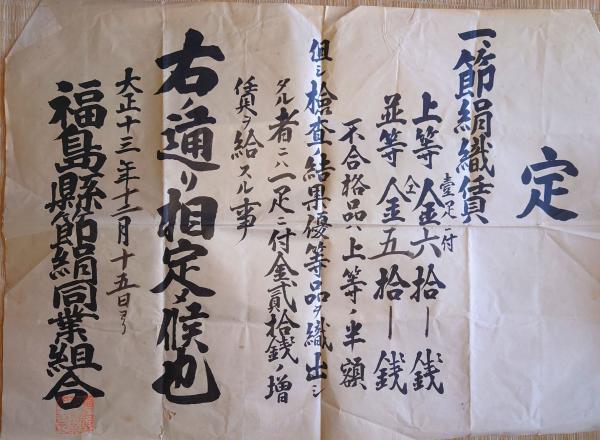 定
一、節絹織賃
上等 壹疋ニ付 金六拾ー銭
並等 仝 金五拾ー銭
不合格品ハ上等ノ半額
但シ検査ノ結果優等品ヲ織出シ
タル者ニハ一疋ニ付金貳拾銭ノ増
賃ヲ給スル事
右ノ通リ相定メ候也
大正十三年十二月十五日ヨリ
福島縣節絹同業組合